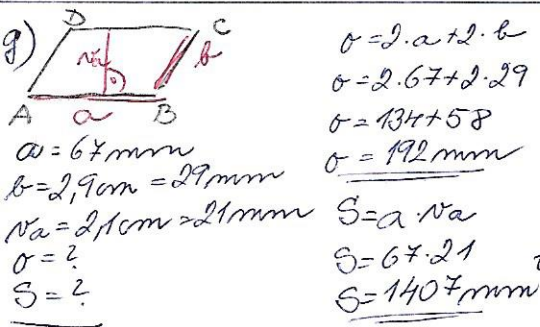 g)
D C
va b
A a B
a = 67 mm
b = 2,9 cm = 29 mm
va = 2,1 cm = 21 mm
o = ?
S = ?
o = 2·a+2·b
o = 2·67+2·29
o = 134+58
o = 192 mm
S = a·va
S = 67·21
S = 1407 mm